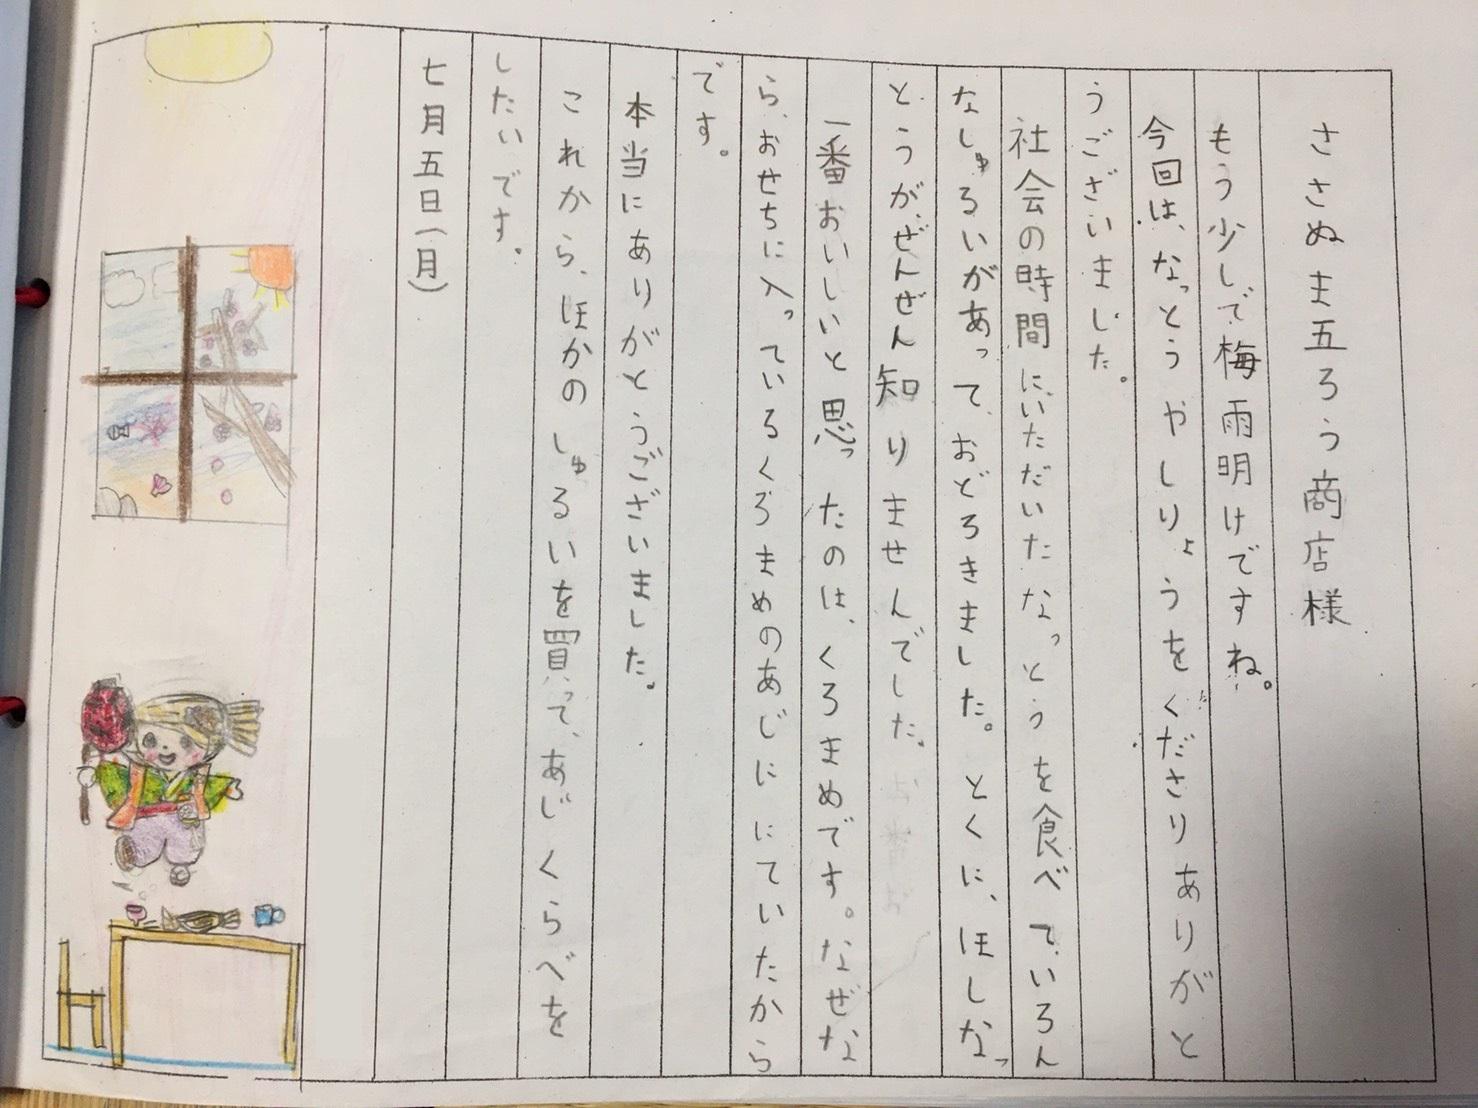 ささぬま五ろう商店様
もう少しで梅雨明けですね。
今回は、なっとうやしりょうをくださりありがと
うございました。
社会の時間にいただいたなっとうを食べていろん
なしゅるいがあって、おどろきました。とくに、ほしなっ
とうが、ぜんぜん知りませんでした。
一番おいしいと思ったのは、くろまめです。なぜな
ら、おせちに入っているくろまめのあじににていたから
です。
本当にありがとうございました。
これから、ほかのしゅるいを買って、あじくらべを
したいです。
七月五日(月)